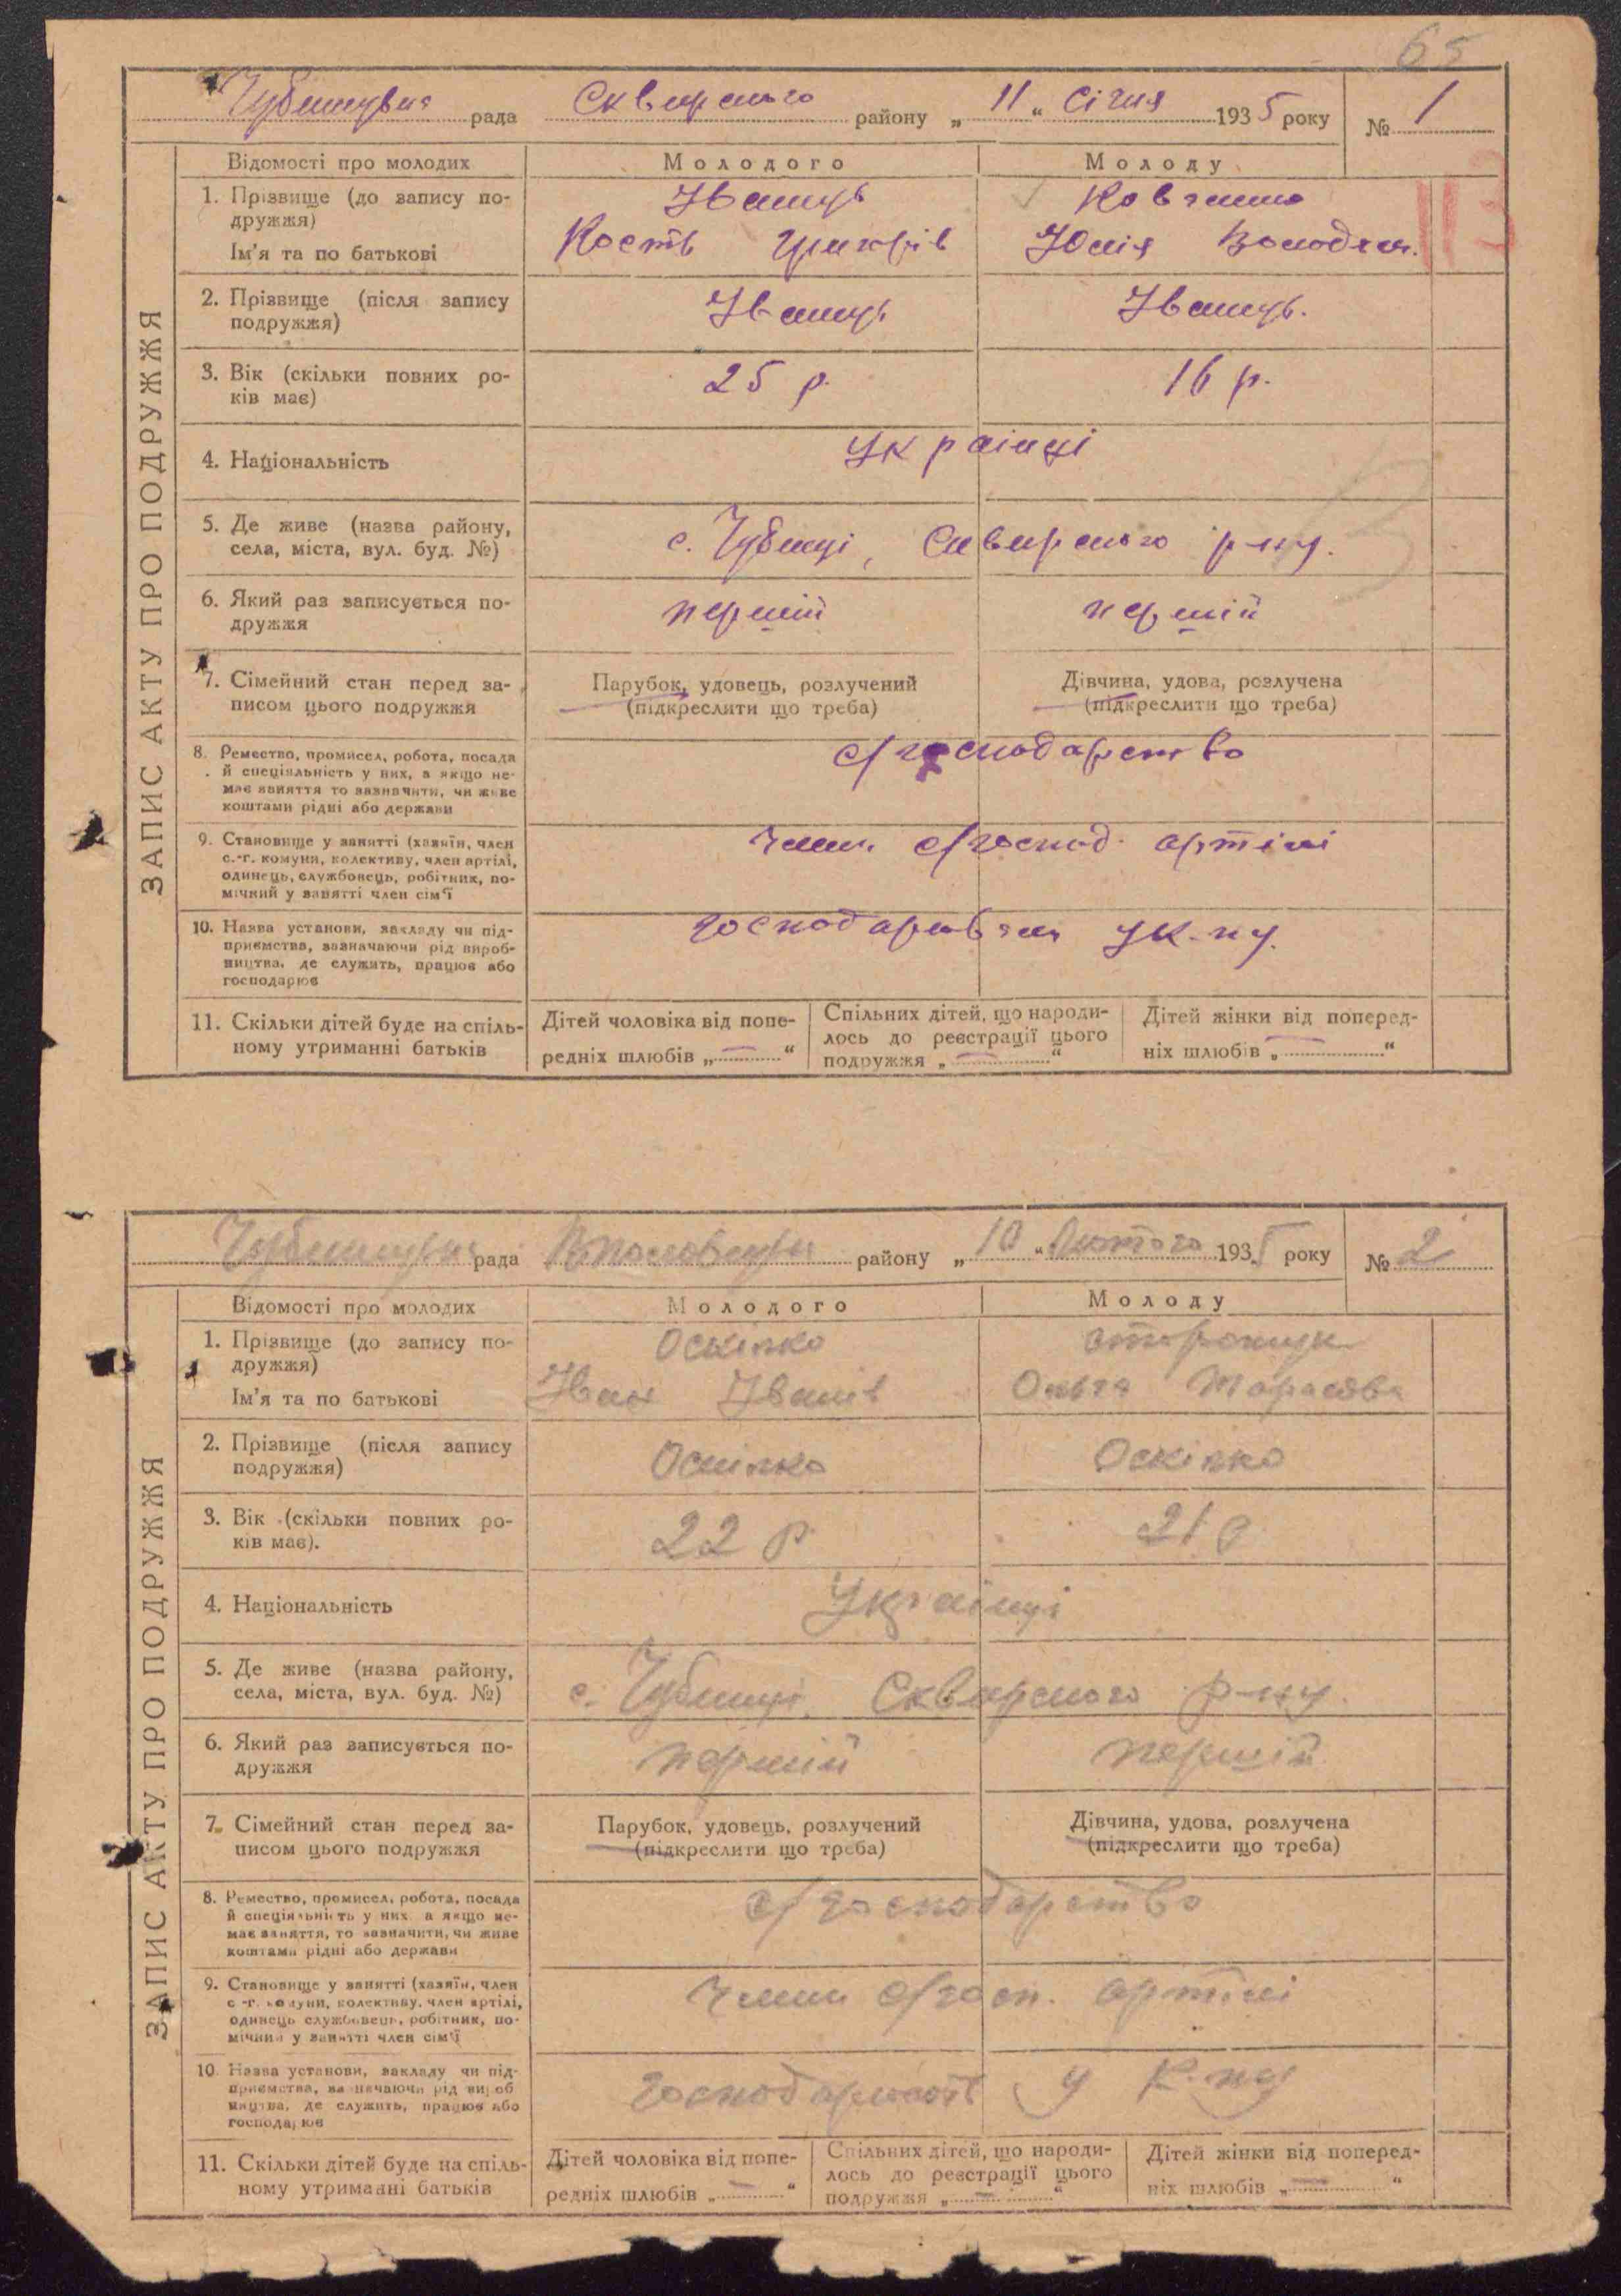 65
Чубинецька рада Сквирського району „ 11 “ Січня 1935 року № 1
113
ЗАПИС АКТУ ПРО ПОДРУЖЖЯ
Відомості про молодих Молодого Молоду
1. Прізвище (до запису по-
дружжя)
Івануць Ковганко
Ім'я та по батькові Кость Григорів Юлія Володим.
2. Прізвище (після запису
подружжя)
Івануць Івануць.
3. Вік (скільки повних ро-
ків має)
25 р. 16 р.
4. Національність Українці
5. Де живе (назва району,
села, міста, вул. буд. №)
с. Чубинці, Сквирського р-ну.
6. Який раз записується по-
дружжя
перший перший
7. Сімейний стан перед за-
писом цього подружжя
Парубок, удовець, розлучений
(підкреслити що треба)
Дівчина, удова, розлучена
(підкреслити що треба)
8. Ремество, промисел, робота, посада
й спеціяльність у них, а якщо не-
має заняття то зазначити, чи живе
коштами рідні або держави
с/господарство
9. Становище у занятті (хазяїн, член
с.-г. комуни, колективу, член артілі,
одинець, службовець, робітник, по-
мічний у занятті член сім'ї
член с/господ. артілі
10. Назва установи, закладу чи під-
приємства, зазначаючи рід вироб-
ництва, де служить, працює або
господарює
11. Скільки дітей буде на спіль-
ному утриманні батьків
Дітей чоловіка від попе-
редніх шлюбів „ — “
Спільних дітей, що народи-
лось до реєстрації цього
подружжя „ — “
Дітей жінки від поперед-
ніх шлюбів „ — “
Чубинецька рада району „ 10 “ Лютого 1935 року № 2
ЗАПИС АКТУ ПРО ПОДРУЖЖЯ
Відомості про молодих Молодого Молоду
1. Прізвище (до запису по-
дружжя)
Оскілко
Ім'я та по батькові Іван Іванів Ольга Тарасова
2. Прізвище (після запису
подружжя)
Оскілко Оскілко
3. Вік (скільки повних ро-
ків має).
22 р 21 р
4. Національність Українці
5. Де живе (назва району,
села, міста, вул. буд. №)
с. Чубинці, Сквирського р-ну.
6. Який раз записується по-
дружжя
перший перший
7. Сімейний стан перед за-
писом цього подружжя
Парубок, удовець, розлучений
(підкреслити що треба)
Дівчина, удова, розлучена
(підкреслити що треба)
8. Ремество, промисел, робота, посада
й спеціяльність у них, а якщо не-
має заняття, то зазначити, чи живе
коштами рідні або держави
с/господарство
9. Становище у занятті (хазяїн, член
с.-г. комуни, колективу, член артілі,
одинець службовець, робітник, по-
мічний у занятті член сім'ї
член с/госп. артілі
10. Назва установи, закладу чи під-
приємства, зазначаючи рід вироб-
ництва, де служить, працює або
господарює
у к-пу
11. Скільки дітей буде на спіль-
ному утриманні батьків
Дітей чоловіка від попе-
редніх шлюбів „ — “
Спільних дітей, що народи-
лось до реєстрації цього
подружжя „ — “
Дітей жінки від поперед-
ніх шлюбів „ — “